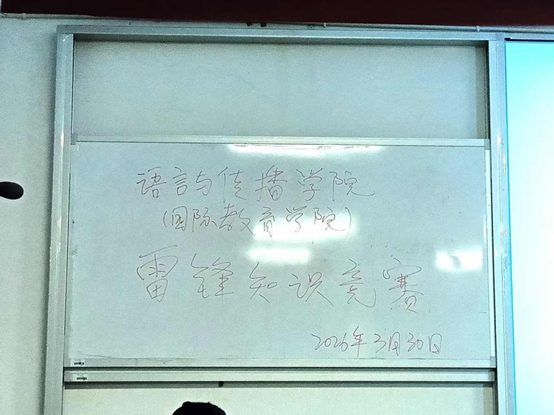 语言与传播学院
(国际教育学院)
雷锋知识竞赛
2026年3月30日